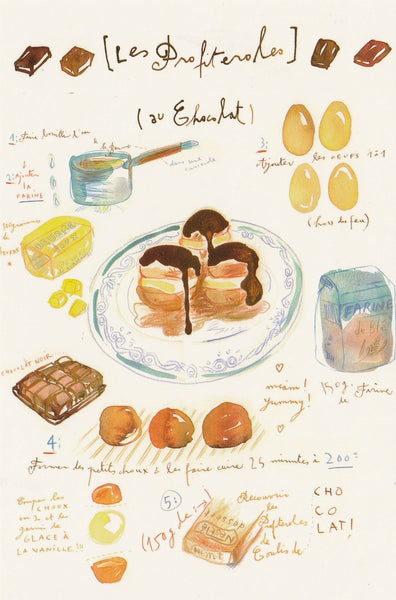 [Les Profiteroles]
(au Chocolat)
1: Faire bouillir l'eau
& le beurre
dans une
casserole
2: Ajouter
LA
FARINE
3:
Ajouter les oeufs 1 à 1
(hors du feu)
de
BEURRE
FARINE
de Blé
CHOCOLAT NOIR
miam!
Yummy!
150g. de Farine
4:
Former des petits choux & les faire cuire 25 minutes à 200°
Couper les
CHOUX
en 2 et les
garnir de
GLACE À
LA VANILLE!!
5:
(150g de
NESTLÉ
dessert
Recouvrir
les
Profiteroles
de
Coulis de
CHO
CO
LAT!